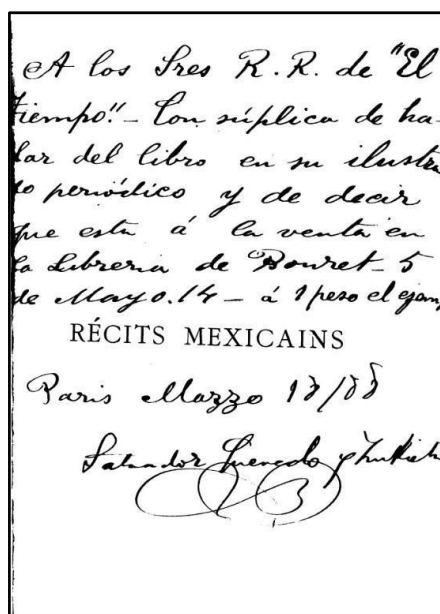 A los Sres R. R. de "El
Tiempo." - Con súplica de ha-
lar del libro en su ilustra
o periódico y de decir
que esta á la venta en
la Libreria de Bouret - 5
de Mayo. 14 - á 1 peso el ejem
RÉCITS MEXICAINS
Paris Marzo 13/88
Salvador Quevedo y Zubieta